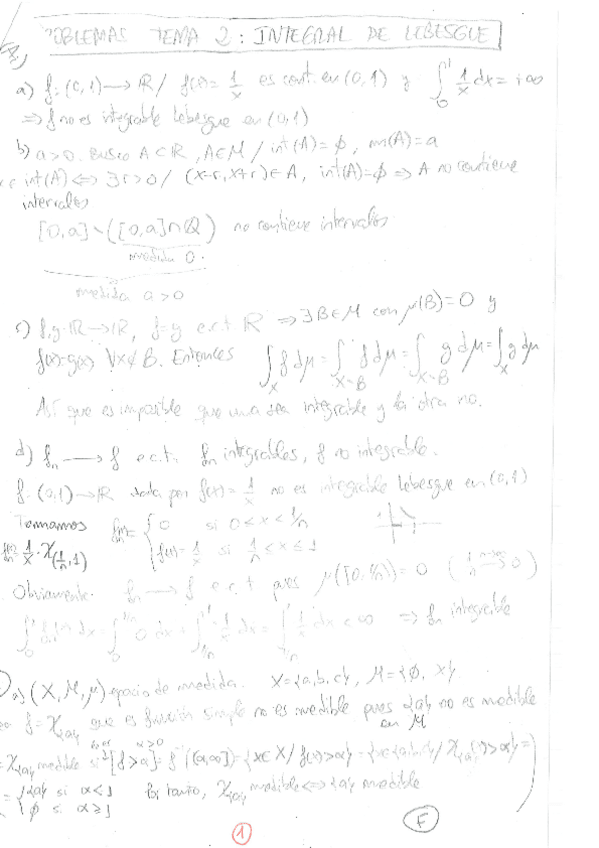 PROBLEMAS TEMA 2: INTEGRAL DE LEBESGUE
a) f: (0,1) → ℝ / f(x) = 1/x es cont. en (0,1) y ∫₀¹ 1/x dx = +∞
⇒ f no es integrable Lebesgue en (0,1)
b) a>0. Busco A⊂ℝ, A∈M / int(A)=ϕ, m(A)=a
int(A) ⟺ ∃r>0 / (x-r, x+r)∈A, int(A)=ϕ ⇒ A no contiene
intervalos
[0,a] \ ([0,a]∩ℚ) no contiene intervalos
medida 0.
medida a>0
c) f,g: ℝ→ℝ, f=g e.c.t ℝ ⇒ ∃B∈M con μ(B)=0 y
f(x)=g(x) ∀x∉B. Entonces ∫_X f dμ = ∫_{X\B} f dμ = ∫_{X\B} g dμ = ∫_X g dμ
Así que es imposible que una sea integrable y la otra no.
d) fₙ → f e.c.t. fₙ integrables, f no integrable.
f: (0,1)→ℝ dada por f(x)=1/x no es integrable Lebesgue en (0,1)
Tomamos fₙ = { 0 si 0<x<1/n
f(x)=1/x si 1/n<x≤1
1/x · χ(1/n,1)
Obviamente fₙ → f e.c.t pues μ([0,1/n]) = 0 (1/n → 0)
∫₀¹ fₙ dx = ∫₀^{1/n} 0 dx + ∫_{1/n}¹ 1/x dx = ∫_{1/n}¹ 1/x dx < ∞ ⇒ fₙ integrable
a) (X,M,μ) espacio de medida. X={a,b,c}, M={ϕ, X}.
f=χ{a} que es función simple no es medible pues {a} no es medible
en M
χ{a} medible si [f>α] = f⁻¹((α,∞]) = {x∈X / f(x)>α} = {x∈{a,b,c} / χ{a}(x)>α} =
= { {a} si α<1
ϕ si α≥1
Por tanto, χ{a} medible ⟺ {a} medible
F
1